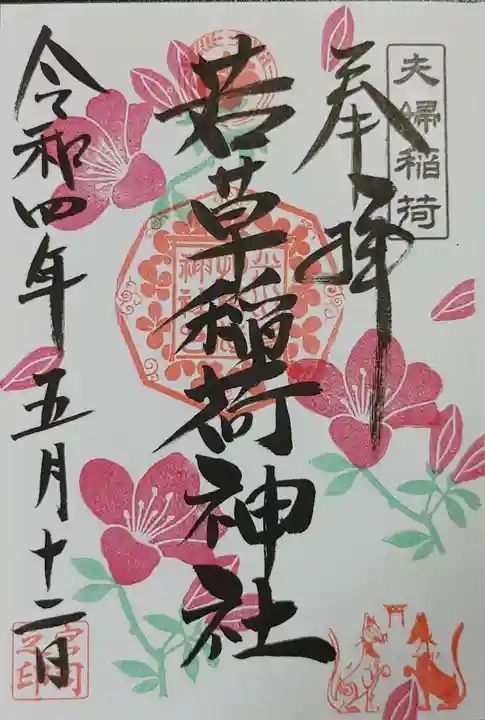 夫婦稲荷
奉拝
若草稲荷神社
令和四年五月十二日
宮司之印